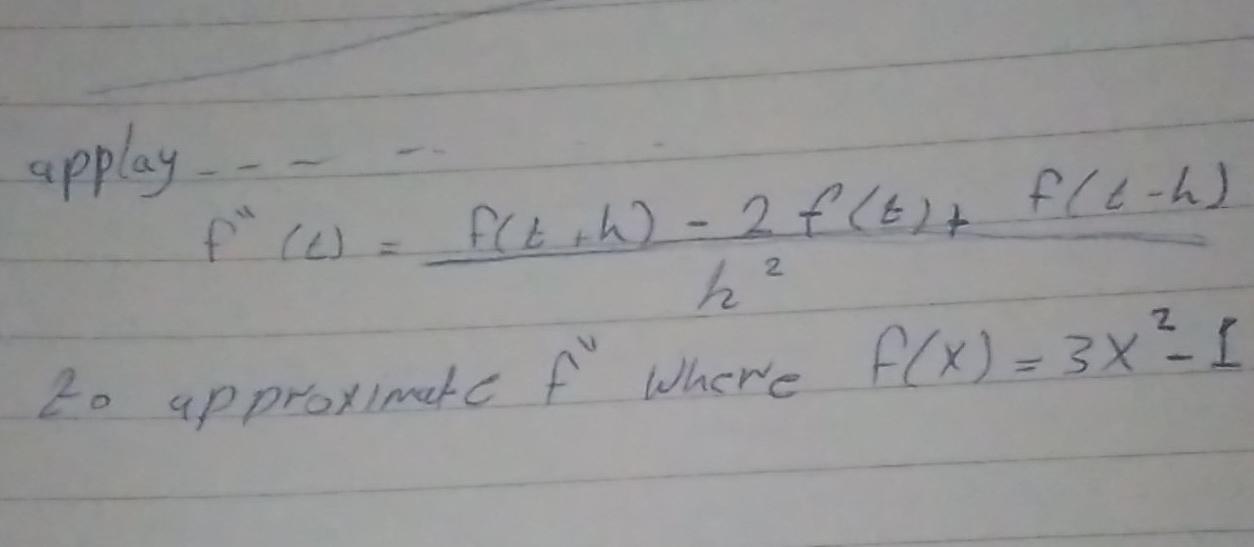 applay - - - - -
f"(t) = f(t+h) - 2f(t) + f(t-h)
h²
to approximate f" where f(x) = 3x² - 1